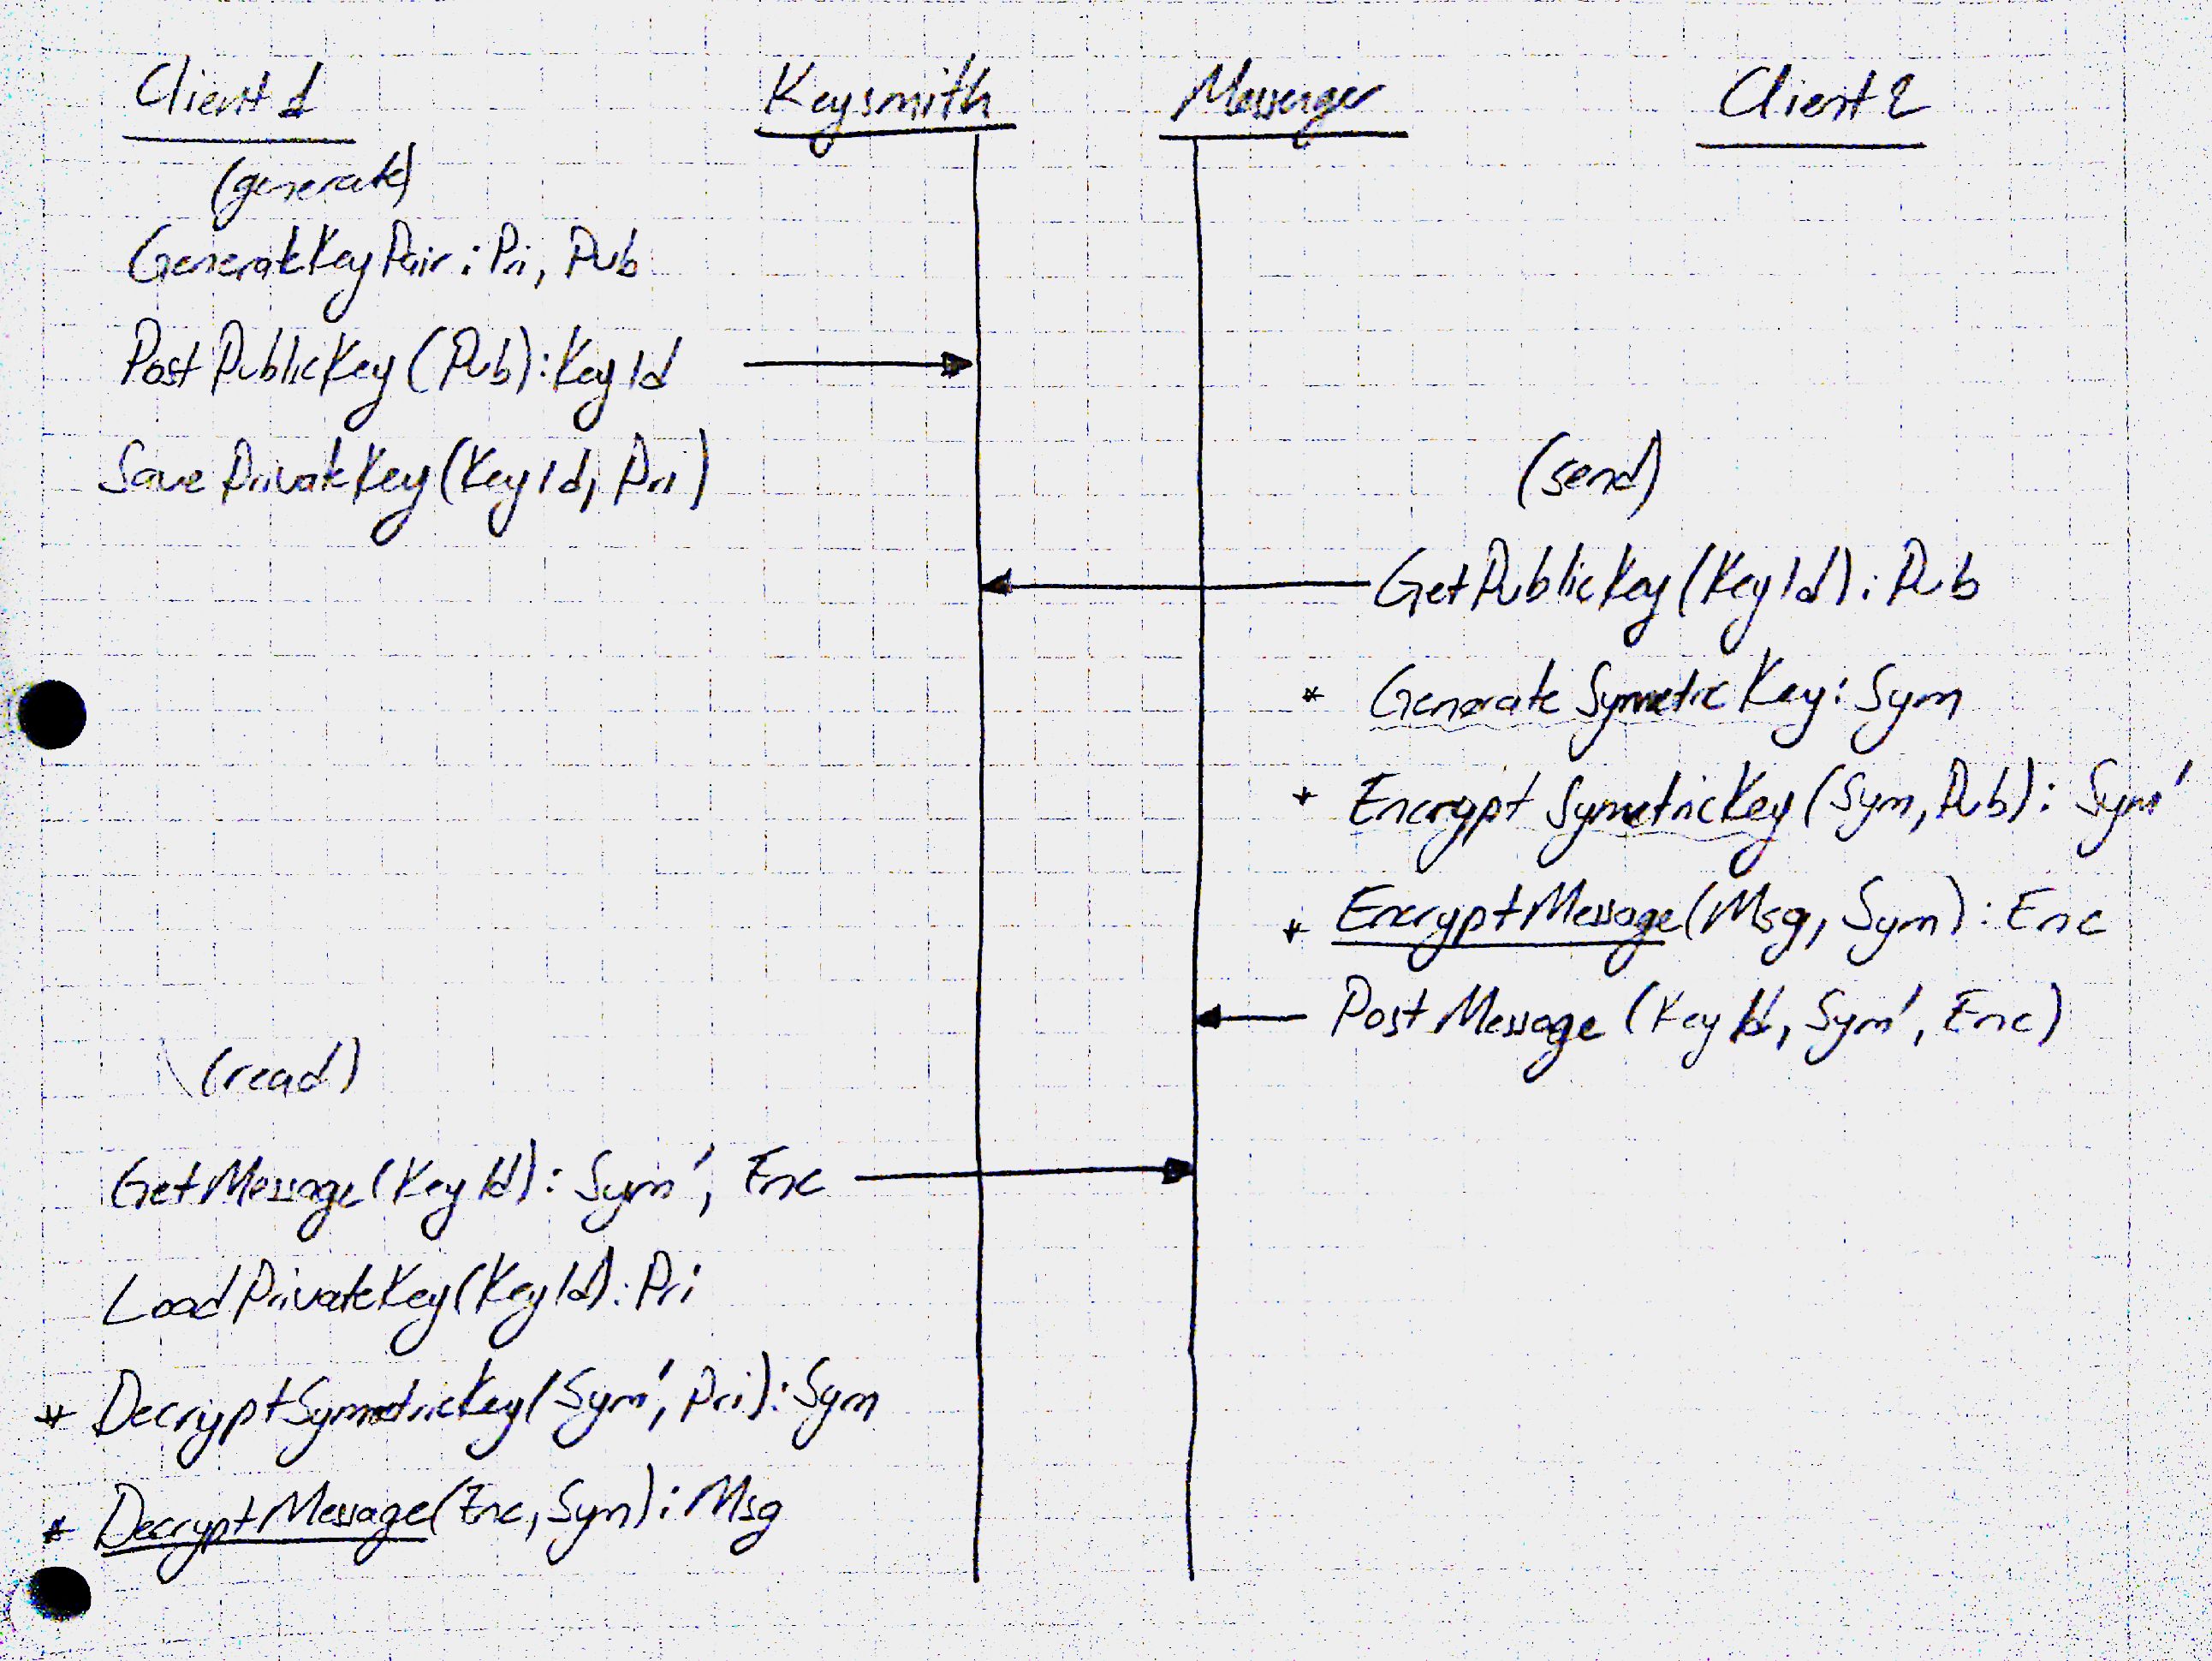 Client 1 Keysmith Messenger Client 2
(generate)
GenerateKeyPair : Pri, Pub
PostPublicKey (Pub) : KeyId
SavePrivateKey (KeyId, Pri)
(send)
GetPublicKey (KeyId) : Pub
* GenerateSymetricKey : Sym
* EncryptSymetricKey (Sym, Pub) : Sym'
* EncryptMessage (Msg, Sym) : Enc
PostMessage (KeyId, Sym', Enc)
(read)
GetMessage (KeyId) : Sym', Enc
LoadPrivateKey (KeyId) : Pri
* DecryptSymetricKey (Sym', Pri) : Sym
* DecryptMessage (Enc, Sym) : Msg